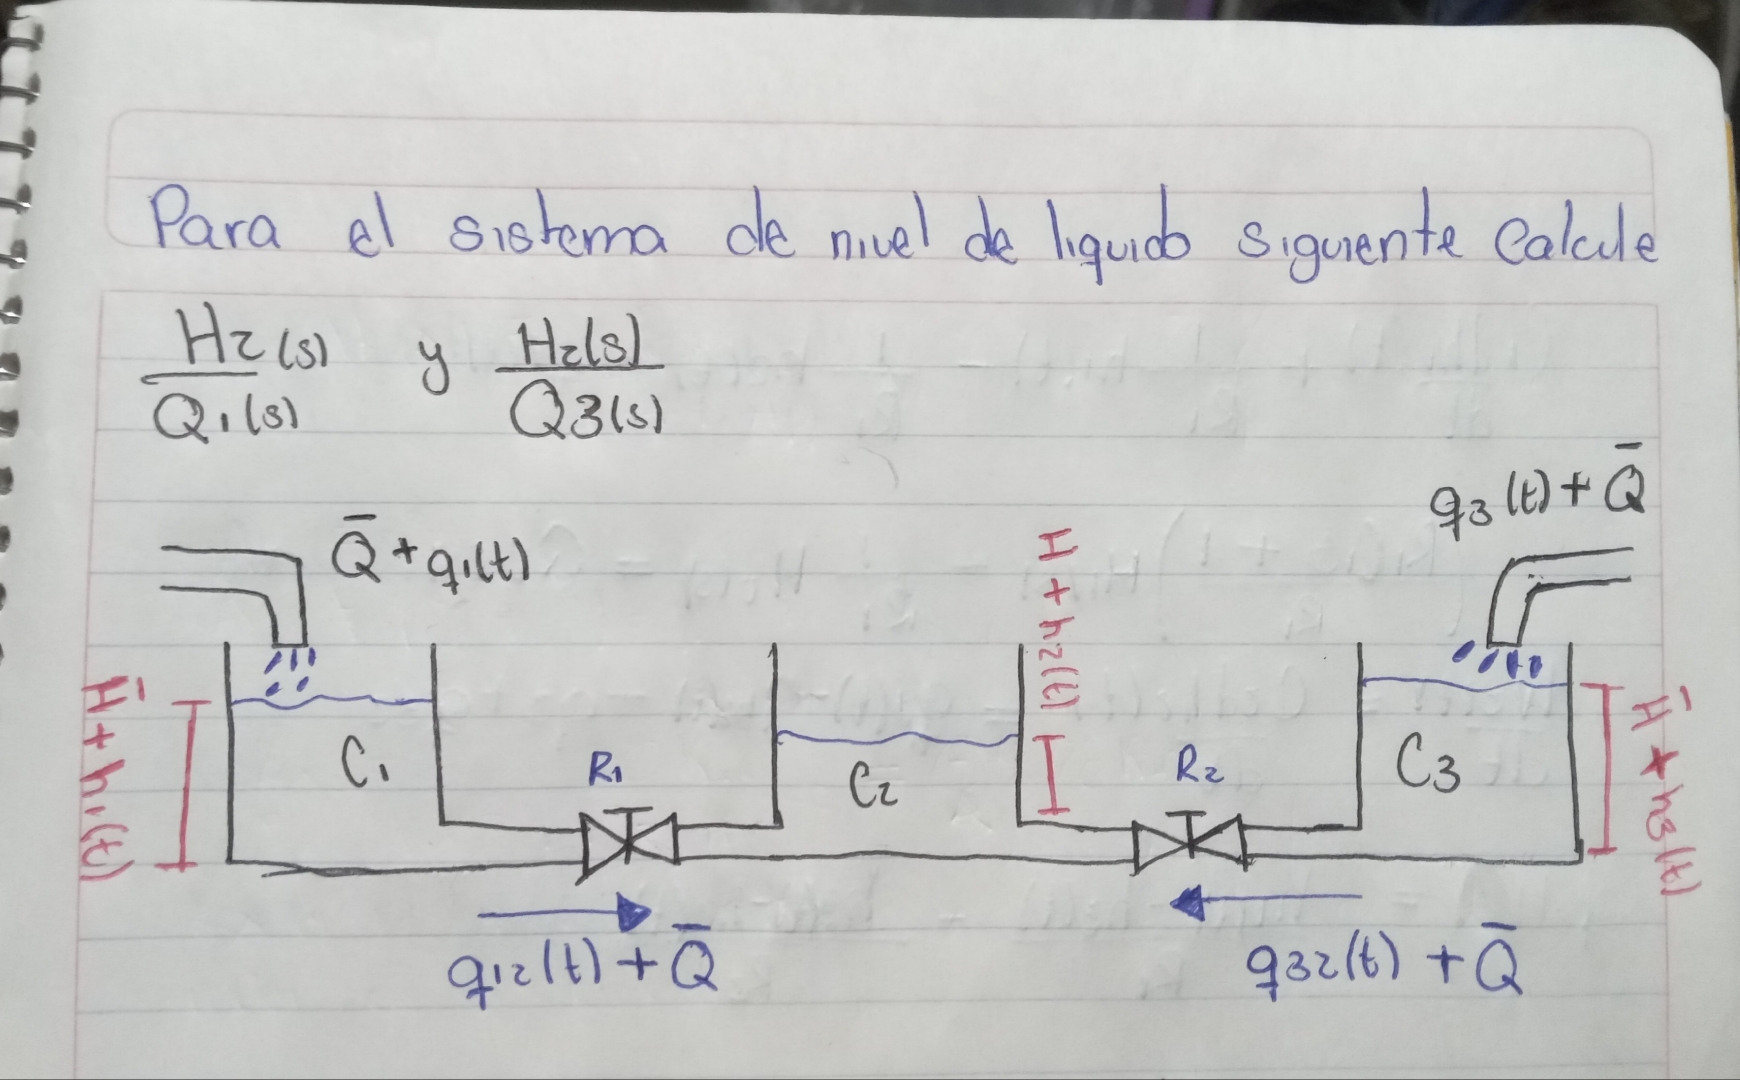 Para el sistema de nivel de liquido siguiente Calcule
H2(s) y H2(s)
Q1(s) Q3(s)
g3(t) + Q̄
Q̄ + q1(t)
H + h2(t)
H̄ + h1(t)
C1
R1
C2
R2
C3
H̄ + h3(t)
q12(t) + Q̄
q32(t) + Q̄